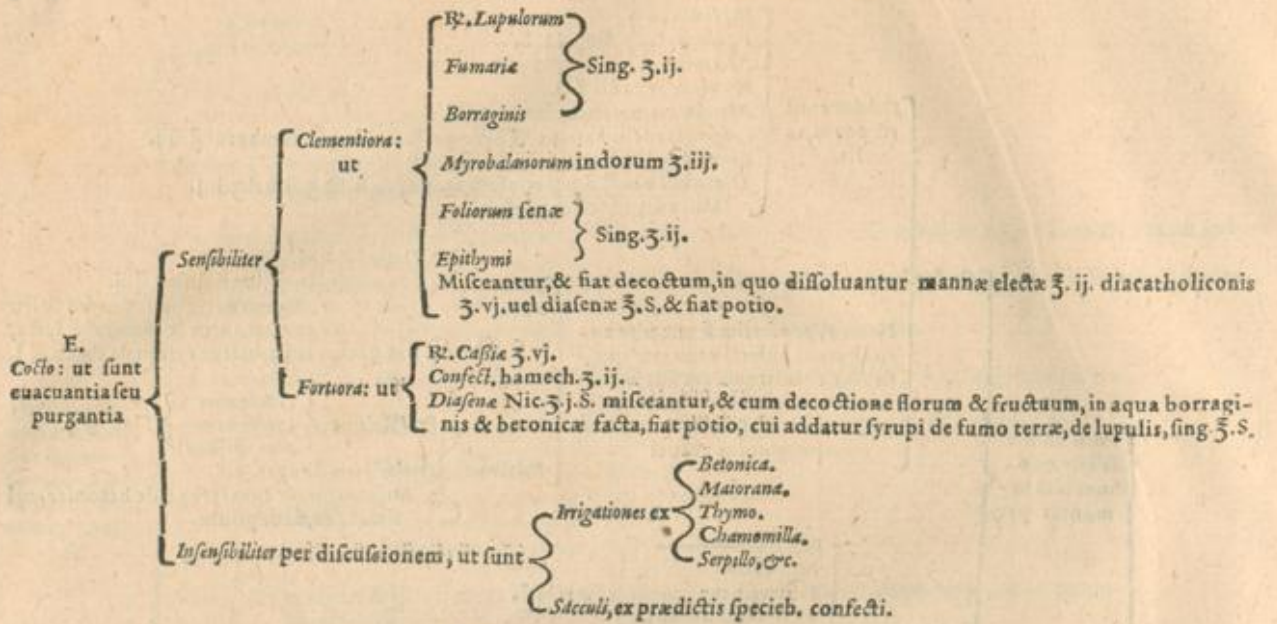 E.
Cocto: ut sunt
euacuantia seu
purgantia
Sensibiliter
Clementiora:
ut
℞. Lupulorum
Fumariæ
Borraginis
Sing. ʒ.ij.
Myrobalanorum indorum ʒ.iij.
Foliorum senæ
Epithymi
Sing.ʒ.ij.
Misceantur,& fiat decoctum,in quo dissoluantur mannæ electæ ℥. ij. diacatholiconis
ʒ.vj.uel diasenæ ℥.S.& fiat potio.
Fortiora: ut
℞. Cassiæ ʒ.vj.
Confect. hamech.ʒ.ij.
Diasenæ Nic.ʒ.j.S. misceantur,& cum decoctione florum & fructuum, in aqua borragi-
nis & betonicæ facta, fiat potio, cui addatur syrupi de fumo terræ, de lupulis, sing.℥.S.
Insensibiliter per discussionem, ut sunt
Irrigationes ex
Betonica.
Maiorana.
Thymo.
Chamomilla.
Serpillo,&c.
Sacculi, ex prædictis specieb. confecti.